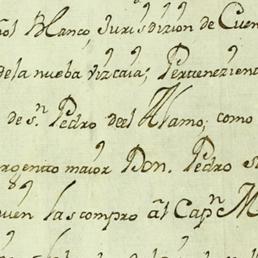 Blanco, Jurisdizion de Cuen
dela nueba Vizcaia; Perteneziend
de sn. Pedro del Alamo; como
argento maior Don. Pedro
quien las compro al Capn. M